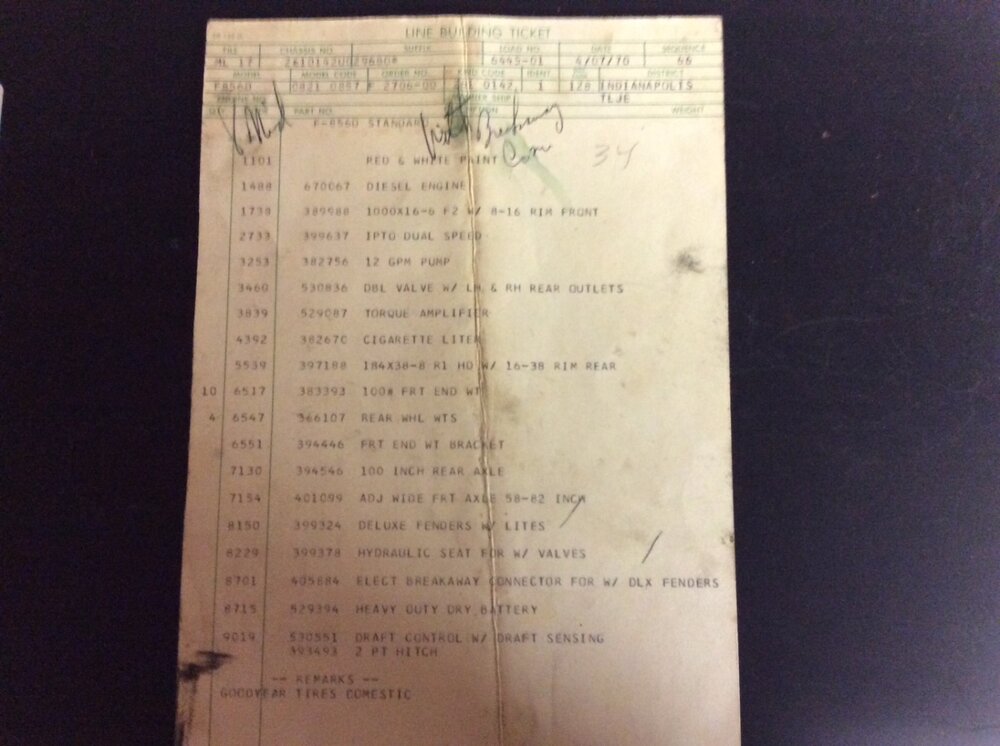 LINE BUILDING TICKET
FILE CHASSIS NO. SUFFIX LOAD NO. DATE SEQUENCE
ML 17 6445-01 4/07/70 66
MODEL MODEL CODE ORDER NO. IDENT DISTRICT
F856D 0821 0857 F 2706-00 0142 1 128 INDIANAPOLIS
TLJE
PART NO. WEIGHT
F-856D STANDARD
With Breakaway
Conn
34
1101 RED & WHITE PAINT
1488 670067 DIESEL ENGINE
1738 389988 1000X16-6 F2 W/ 8-16 RIM FRONT
2733 399637 IPTO DUAL SPEED
3253 382756 12 GPM PUMP
3460 530836 DBL VALVE W/ LH & RH REAR OUTLETS
3839 529087 TORQUE AMPLIFIER
4392 382670 CIGARETTE LITER
5539 397188 184X38-8 R1 HD W/ 16-38 RIM REAR
10 6517 383393 100# FRT END WT
4 6547 366107 REAR WHL WTS
6551 394446 FRT END WT BRACKET
7130 394546 100 INCH REAR AXLE
7154 401099 ADJ WIDE FRT AXLE 58-82 INCH
8150 399324 DELUXE FENDERS W/ LITES
8229 399378 HYDRAULIC SEAT FOR W/ VALVES
8701 405884 ELECT BREAKAWAY CONNECTOR FOR W/ DLX FENDERS
8715 529394 HEAVY DUTY DRY BATTERY
9019 530551 DRAFT CONTROL W/ DRAFT SENSING
393493 2 PT HITCH
-- REMARKS --
GOODYEAR TIRES DOMESTIC